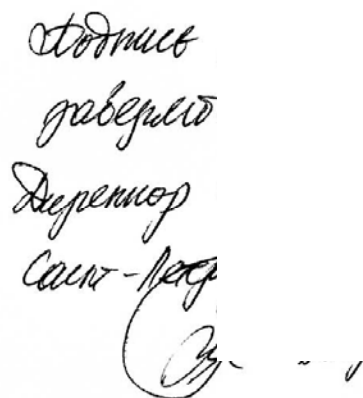 Подпись
заверяю
Директор
Санкт-Петер